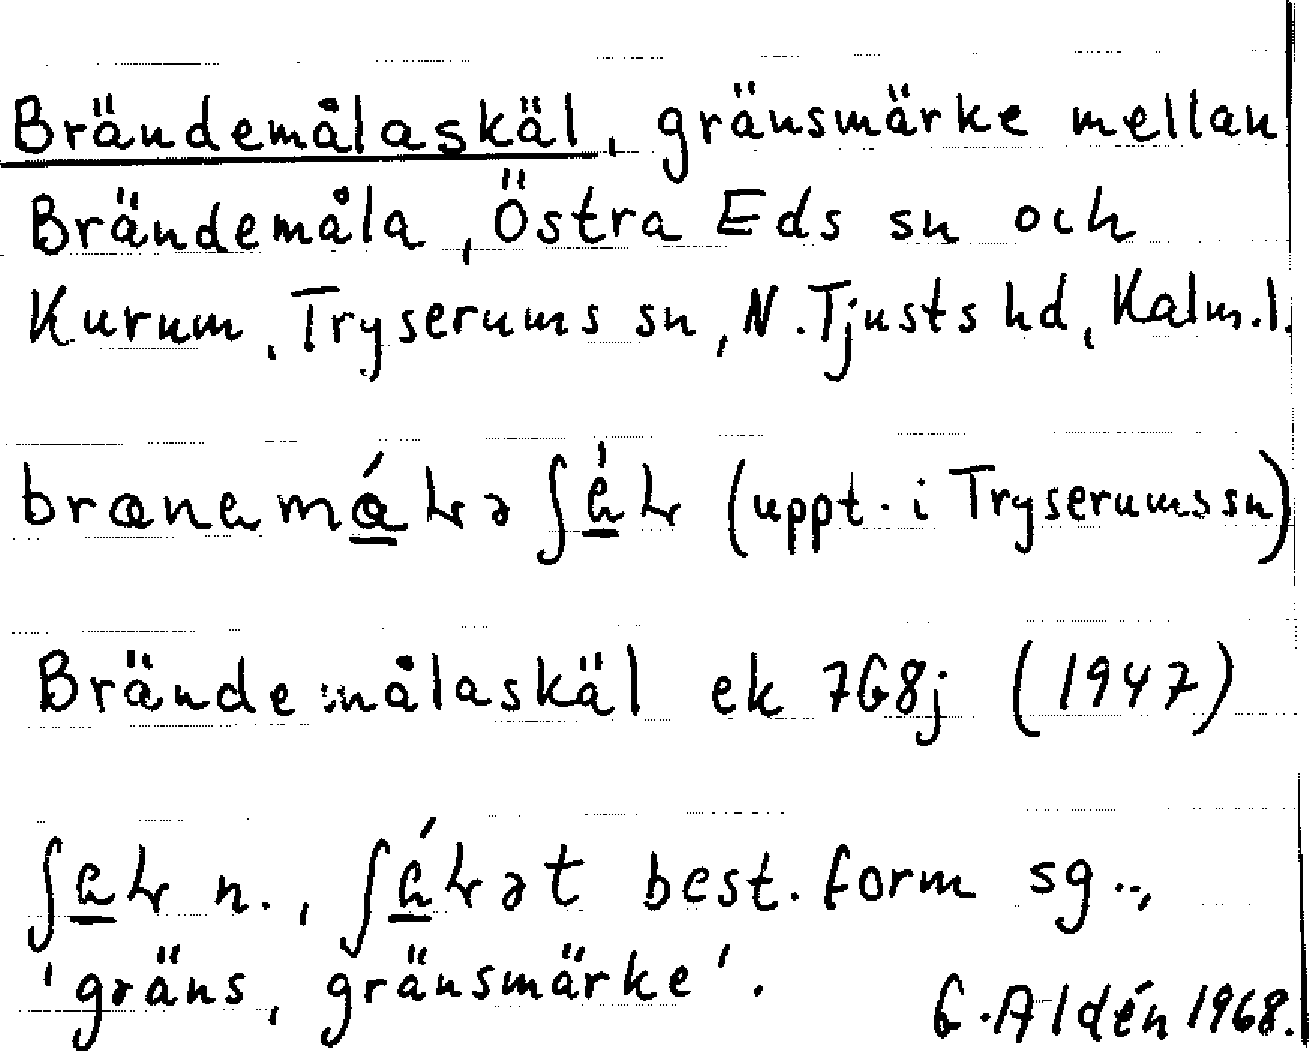 Brändemålaskäl, gränsmärke mellan
Brändemåla, Östra Eds sn och
Kurum, Tryserums sn, N. Tjusts hd, Kalm. l.
(uppt. i Tryserums sn)
Brändemålaskäl ek 7G8j (1947)
n., best. form sg.,
'gräns, gränsmärke'.
G. Aldén 1968.